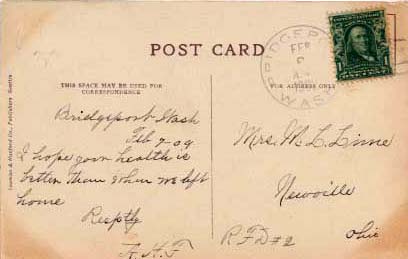 POST CARD
THIS SPACE MAY BE USED FOR
CORRESPONDENCE
FOR ADDRESS ONLY
BRIDGEP
FEB
WASH
1
Bridgeport Wash
Feb 7-09
I hope your health is
better than when we left
home
Resptly
A.H.F
Mrs. M. L. Linne
Newville
RFD #2
Ohio
Lowman & Hanford Co., Publishers Seattle